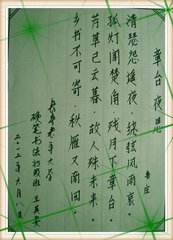 章台夜思
韦庄
清瑟怨遥夜绕弦风雨哀
孤灯闻楚角残月下章台
芳草已云暮故人殊未来
乡书不可寄秋雁又南回
硬笔书法初级班
二〇一二年六月八日